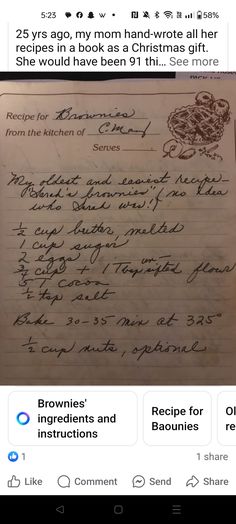 5:23
58%
25 yrs ago, my mom hand-wrote all her
recipes in a book as a Christmas gift.
She would have been 91 thi... See more
Recipe for Brownies
from the kitchen of C. May
Serves
My oldest and easiest recipe-
"Sarah's brownies" (no idea
who Sarah was!)
1/2 cup butter, melted
1 cup sugar
2 eggs
3/4 cup + 1 Tbsp un-sifted flour
5 T cocoa
1/2 tsp salt
Bake 30-35 min at 325°
1/2 cup nuts, optional
Brownies'
ingredients and
instructions
Recipe for
Baounies
Ol
re
1
1 share
Like
Comment
Send
Share